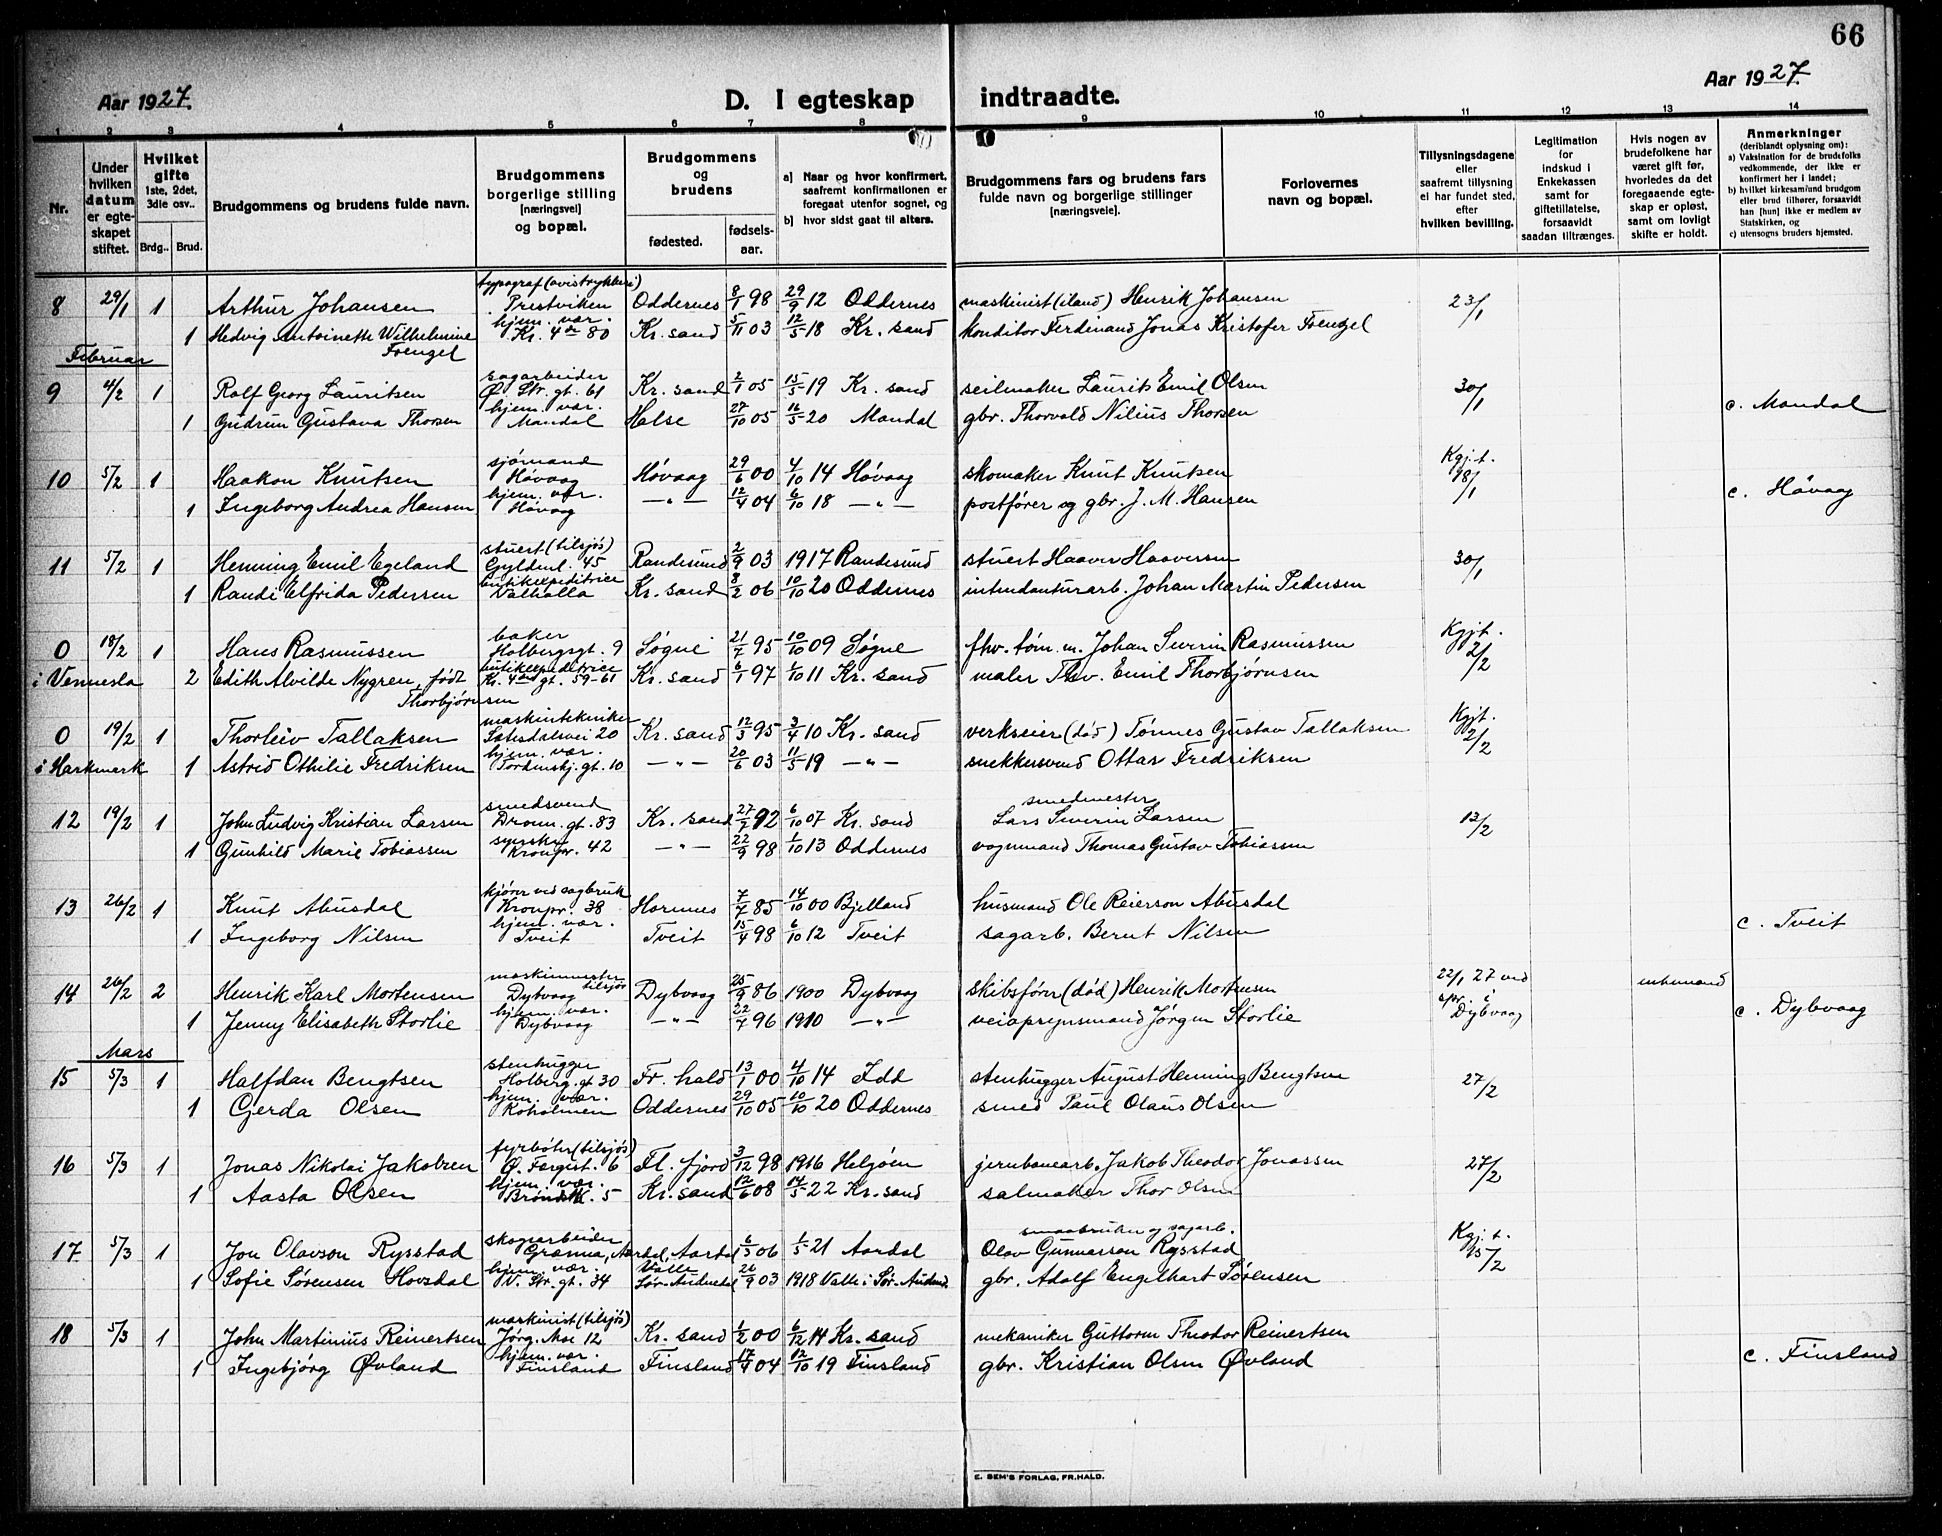 66
Aar 1927.
D. I egteskap indtraadte.
Aar 1927.
1 2 3 4 5 6 7 8 9 10 11 12 13 14
Nr.
Under hvilken datum er egteskapet stiftet.
Hvilket gifte 1ste, 2det, 3die osv..
Brdg.. Brud.
Brudgommens og brudens fulde navn.
Brudgommens borgerlige stilling [næringsvei] og bopæl.
Brudgommens og brudens
fødested. fødselsaar.
a) Naar og hvor konfirmert, saafremt konfirmationen er foregaat utenfor sognet, og
b) hvor sidst gaat til alters.
Brudgommens fars og brudens fars fulde navn og borgerlige stillinger [næringsveie].
Forlovernes navn og bopæl.
Tillysningsdagene eller saafremt tillysning ei har fundet sted, efter hvilken bevilling.
Legitimation for indskud i Enkekassen samt for giftetillatelse, forsaavidt saadan tiltrænges.
Hvis nogen av brudefolkene har været gift før, hvorledes da det foregaaende egteskap er opløst, samt om lovligt skifte er holdt.
Anmerkninger (deriblandt oplysning om):
a) Vaksination for de brudefolks vedkommende, der ikke er konfirmert her i landet;
b) hvilket kirkesamfund brudgom eller brud tilhører, forsaavidt han [hun] ikke er medlem av Statskirken, og
c) utensogns bruders hjemsted.
8 29/1 1 Arthur Johansen typograf (avistrykkeri) Prestviken Oddernes 8/1 98 29/9 12 Oddernes maskinist (iland) Henrik Johansen 23/1
1 Hedvig Antoinette Wilhelmine Foengel hjem. vær. Kr. 4des 80 Kr. sand 5/11 03 12/5 18 Kr. sand konditor Ferdinand Jonas Kristofer Foengel
Februar
9 4/2 1 Rolf Georg Lauritsen sagarbeider Ø. Str. gt. 61 Kr. sand 2/1 05 15/5 19 Kr. sand seilmaker Laurits Emil Olsen 30/1
1 Gudrun Gustava Thorsen hjem. vær. Mandal Halse 27/10 05 16/5 20 Mandal gbr. Thorvald Nilius Thorsen c. Mandal
10 5/2 1 Haakon Knutsen sjømand Høvaag Høvaag 29/6 00 4/10 14 Høvaag skomaker Knut Knutsen Kgj.t. 18/1
1 Ingeborg Andrea Hansen hjem. vær. Høvaag —"— 12/4 04 6/10 18 —"— postfører og gbr. J. M. Hansen c. Høvaag
11 5/2 1 Henning Emil Egeland stuert (tilsjøs) Gyldenl. 45 Randesund 2/9 03 1917 Randesund stuert Haaver Haaversen 30/1
1 Randi Elfrida Pedersen butikexpeditrice Valhalla Kr. sand 8/2 06 10/10 20 Oddernes intendanturarb. Johan Martin Pedersen
0 18/2 1 Hans Rasmussen baker Holbergsgt. 9 Søgne 21/7 95 10/10 09 Søgne fhv. tøm. m. Johan Severin Rasmussen Kgjt. 2/2
i Vennesla 2 Edith Alvilde Nygren, født Thorbjørnsen butikexpeditrice Kr. 4des gt. 59-61 Kr. sand 6/1 97 1/10 11 Kr. sand maler Thv. Emil Thorbjørnsen
0 19/2 1 Thorleiv Tallaksen maskintekniker Setesdalsvei 20 Kr. sand 12/3 95 3/4 10 Kr. sand verkseier (død) Tønnes Gustav Tallaksen Kgjt. 2/2
i Harkmark 1 Astrid Othilie Fredriksen hjem. vær. Tordenskj. gt. 10 —"— 20/6 03 11/5 19 —"— snekkersvend Ottar Fredriksen
12 19/2 1 John Ludvig Kristian Larsen smedsvend Dronn. gt. 83 Kr. sand 27/7 92 6/10 07 Kr. sand smedmester Lars Severin Larsen 13/2
1 Gunhild Marie Tobiassen syerske Kronpr. 42 —"— 22/9 98 1/10 13 Oddernes vognmand Thomas Gustav Tobiassen
13 26/2 1 Knut Abusdal kjører ved sagbruk Kronpr. 38 Hornnes 7/7 85 14/10 00 Bjelland husmand Ole Reierson Abusdal
1 Ingeborg Nilsen hjem. vær. Tveit Tveit 15/4 98 6/10 12 Tveit sagarb. Bernt Nilsen c. Tveit
14 26/2 2 Henrik Karl Mortensen maskinmester tilsjøs Dybvaag Dybvaag 25/9 86 1900 Dybvaag skibsfører (død) Henrik Mortensen 22/1 27 ved spr. i Dybvaag enkemand
1 Jenny Elisabeth Storlie hjem. vær. Dybvaag —"— 22/7 96 1910 —"— veiopsynsmand Jørgen Storlie c. Dybvaag
Mars
15 5/3 1 Halfdan Bengtsen stenhugger Holberg. gt 30 Fr. hald 13/1 00 4/10 14 Idd stenhugger August Henning Bengtsen 27/2
1 Gerda Olsen hjem. vær. Koholmen Oddernes 29/10 05 10/10 20 Oddernes smed Paul Olaus Olsen
16 5/3 1 Jonas Nikolai Jakobsen fyrbøter (tilsjøs) Ø. Færgest. 6 Fl. fjord 3/12 98 1916 Helgøen jernbanearb. Jakob Theodor Jonassen 27/2
1 Aasta Olsen hjem. vær. 5 Kr. sand 12/6 08 14/5 22 Kr. sand salmaker Thor Olsen
17 5/3 1 Jon Olavson Rysstad skogarbeider Granna, Aardal Aardal 6/3 06 1/5 21 Aardal smaabruker og sagarb. Olav Gunnarson Rysstad Kgj.t. 15/2
1 Sofie Sørensen Hovsdal hjem. vær. V. Str. gt. 34 Valle Sør-Audnedal 26/9 03 1918 Valle i Sør-Audned. gbr. Adolf Engelhart Sørensen
18 5/3 1 John Martinius Reinertsen maskinist (tilsjøs) Jörg. Moe 12 Kr. sand 1/2 00 6/12 14 Kr. sand mekaniker Guttorm Theodor Reinertsen
1 Ingebjörg Øvland hjem. vær. Finsland Finsland 17/4 04 12/10 19 Finsland gbr. Kristian Olsen Øvland c. Finsland
E. SEM'S FORLAG, FR.HALD.